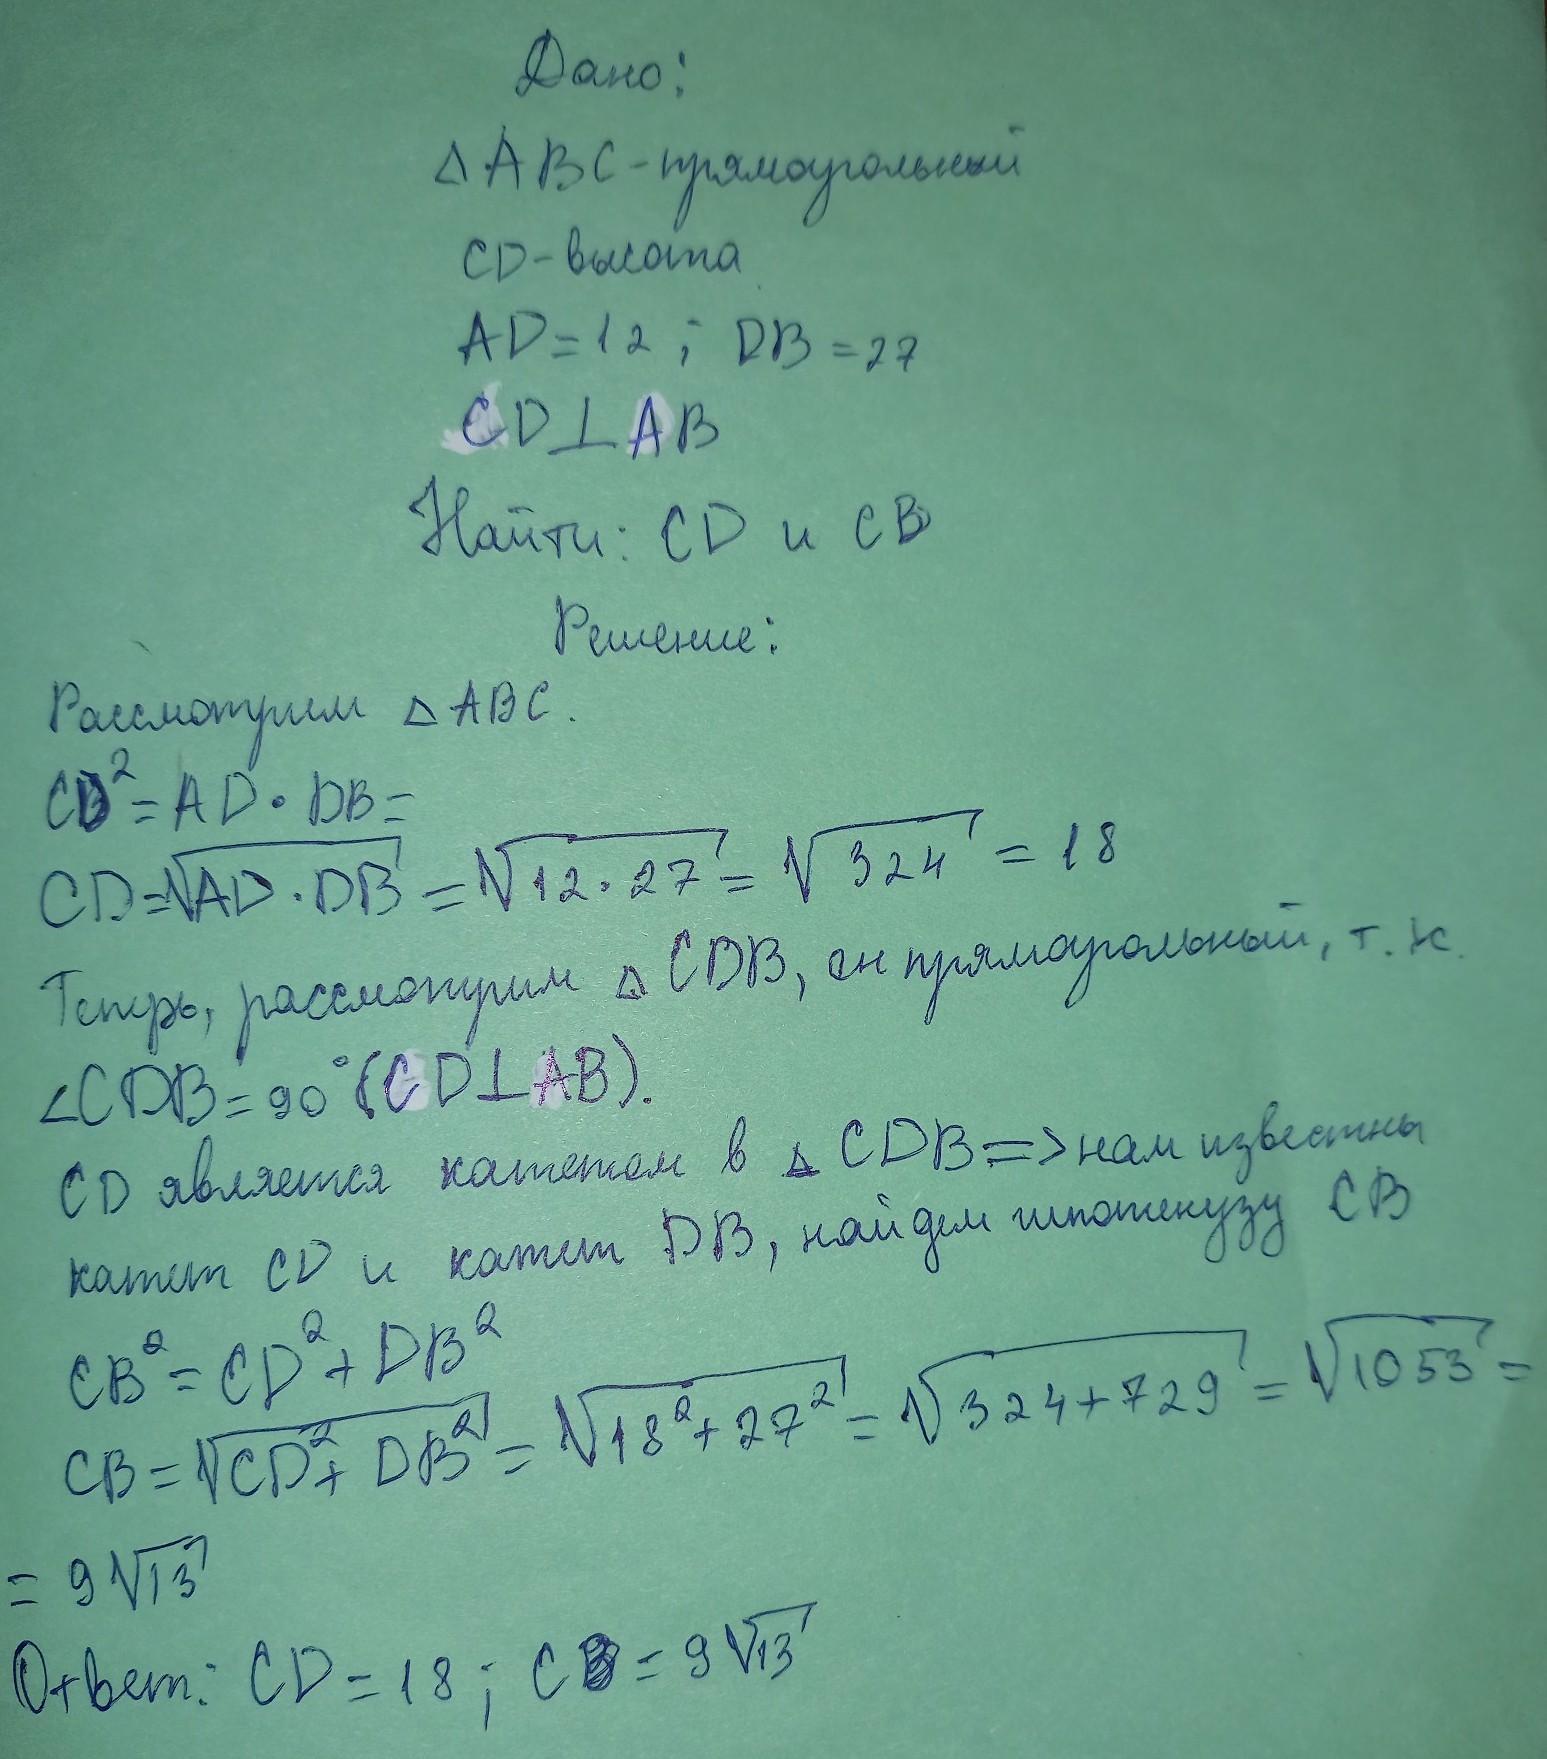 Дано:
△ABC - прямоугольный
CD - высота
AD = 12 ; DB = 27
CD⊥AB
Найти: CD и CB
Решение:
Рассмотрим △ABC.
CD² = AD · DB =
CD = √AD · DB = √12 · 27 = √324 = 18
Теперь, рассмотрим △CDB, он прямоугольный, т.к.
∠CDB = 90° (CD⊥AB).
CD является катетом в △CDB => нам известны
катет CD и катет DB, найдем гипотенузу CB
CB² = CD² + DB²
CB = √CD² + DB² = √18² + 27² = √324 + 729 = √1053 =
= 9√13
Ответ: CD = 18 ; CB = 9√13